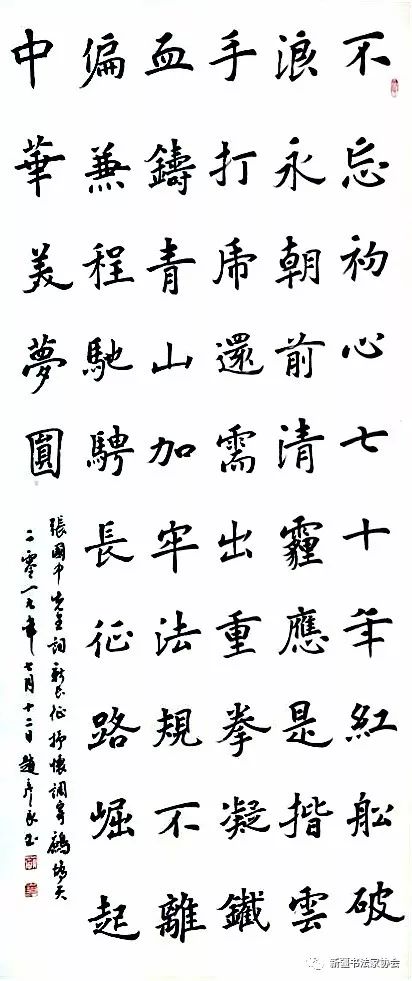 不忘初心七十年紅船破
浪永朝前清霾應是揩雲
手打虎還需出重拳凝鐵
血鑄青山加牢法規不離
偏兼程馳騁長征路崛起
中華美夢圓
張國中先生詞新長征抒懷調寄鷓鴣天
二零一九年七月十二日趙彥良
新疆书法家协会